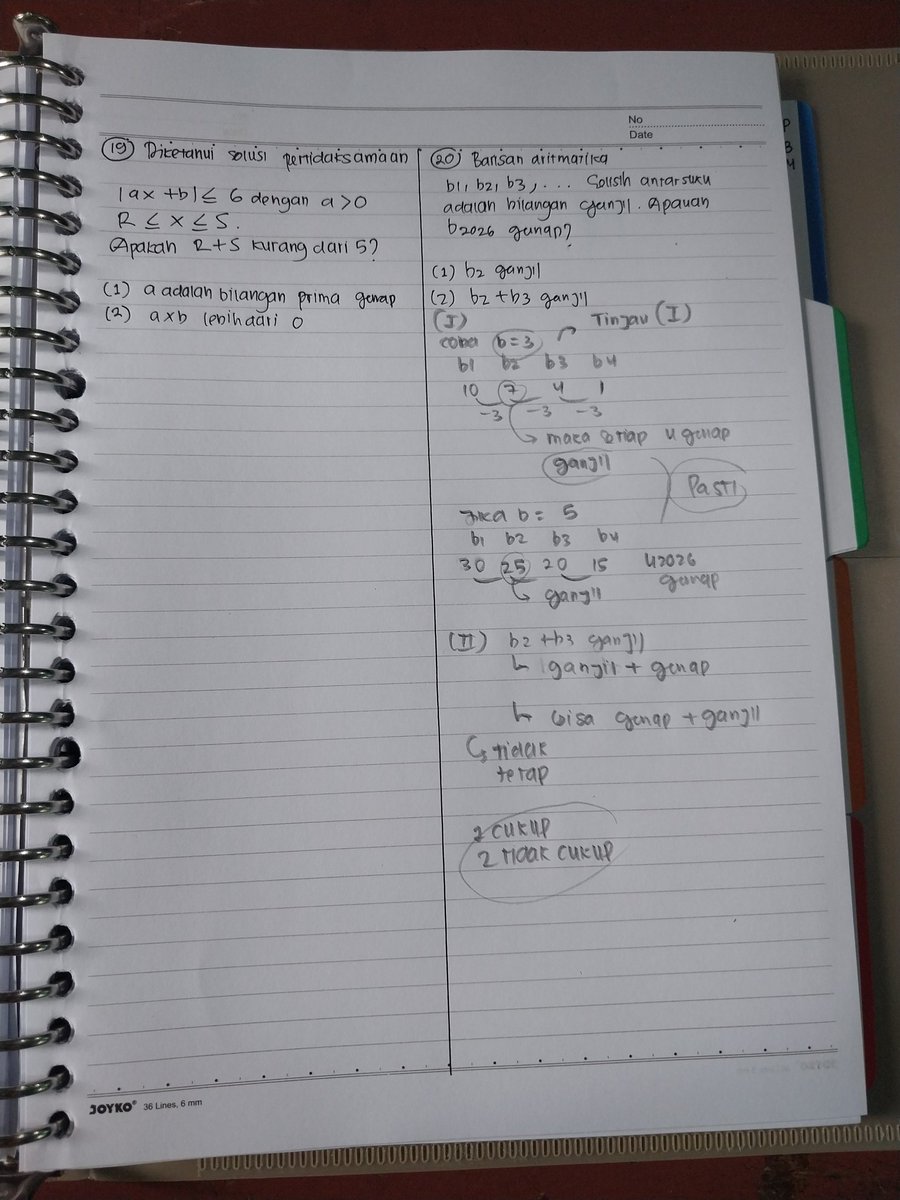 No
Date
(19) Diketahui solusi pertidaksamaan
|ax + b| ≤ 6 dengan a > 0
R ≤ x ≤ S.
Apakah R+S kurang dari 5?
(1) a adalah bilangan prima genap
(2) a x b lebih dari 0
(20) Barisan aritmatika
b1, b2, b3, ... Selisih antar suku
adalah bilangan ganjil. Apakah
b2026 genap?
(1) b2 ganjil
(2) b2 + b3 ganjil
(I) Tinjau (I)
coba b = 3
b1 b2 b3 b4
10 7 4 1
-3 -3 -3
maka setiap u genap
ganjil
Pasti
Jika b = 5
b1 b2 b3 b4
30 25 20 15 U2026
genap
ganjil
(II) b2 + b3 ganjil
ganjil + genap
bisa genap + ganjil
tidak
tetap
1 CUKUP
2 TIDAK CUKUP
JOYKO® 36 Lines, 6 mm
P
B
M